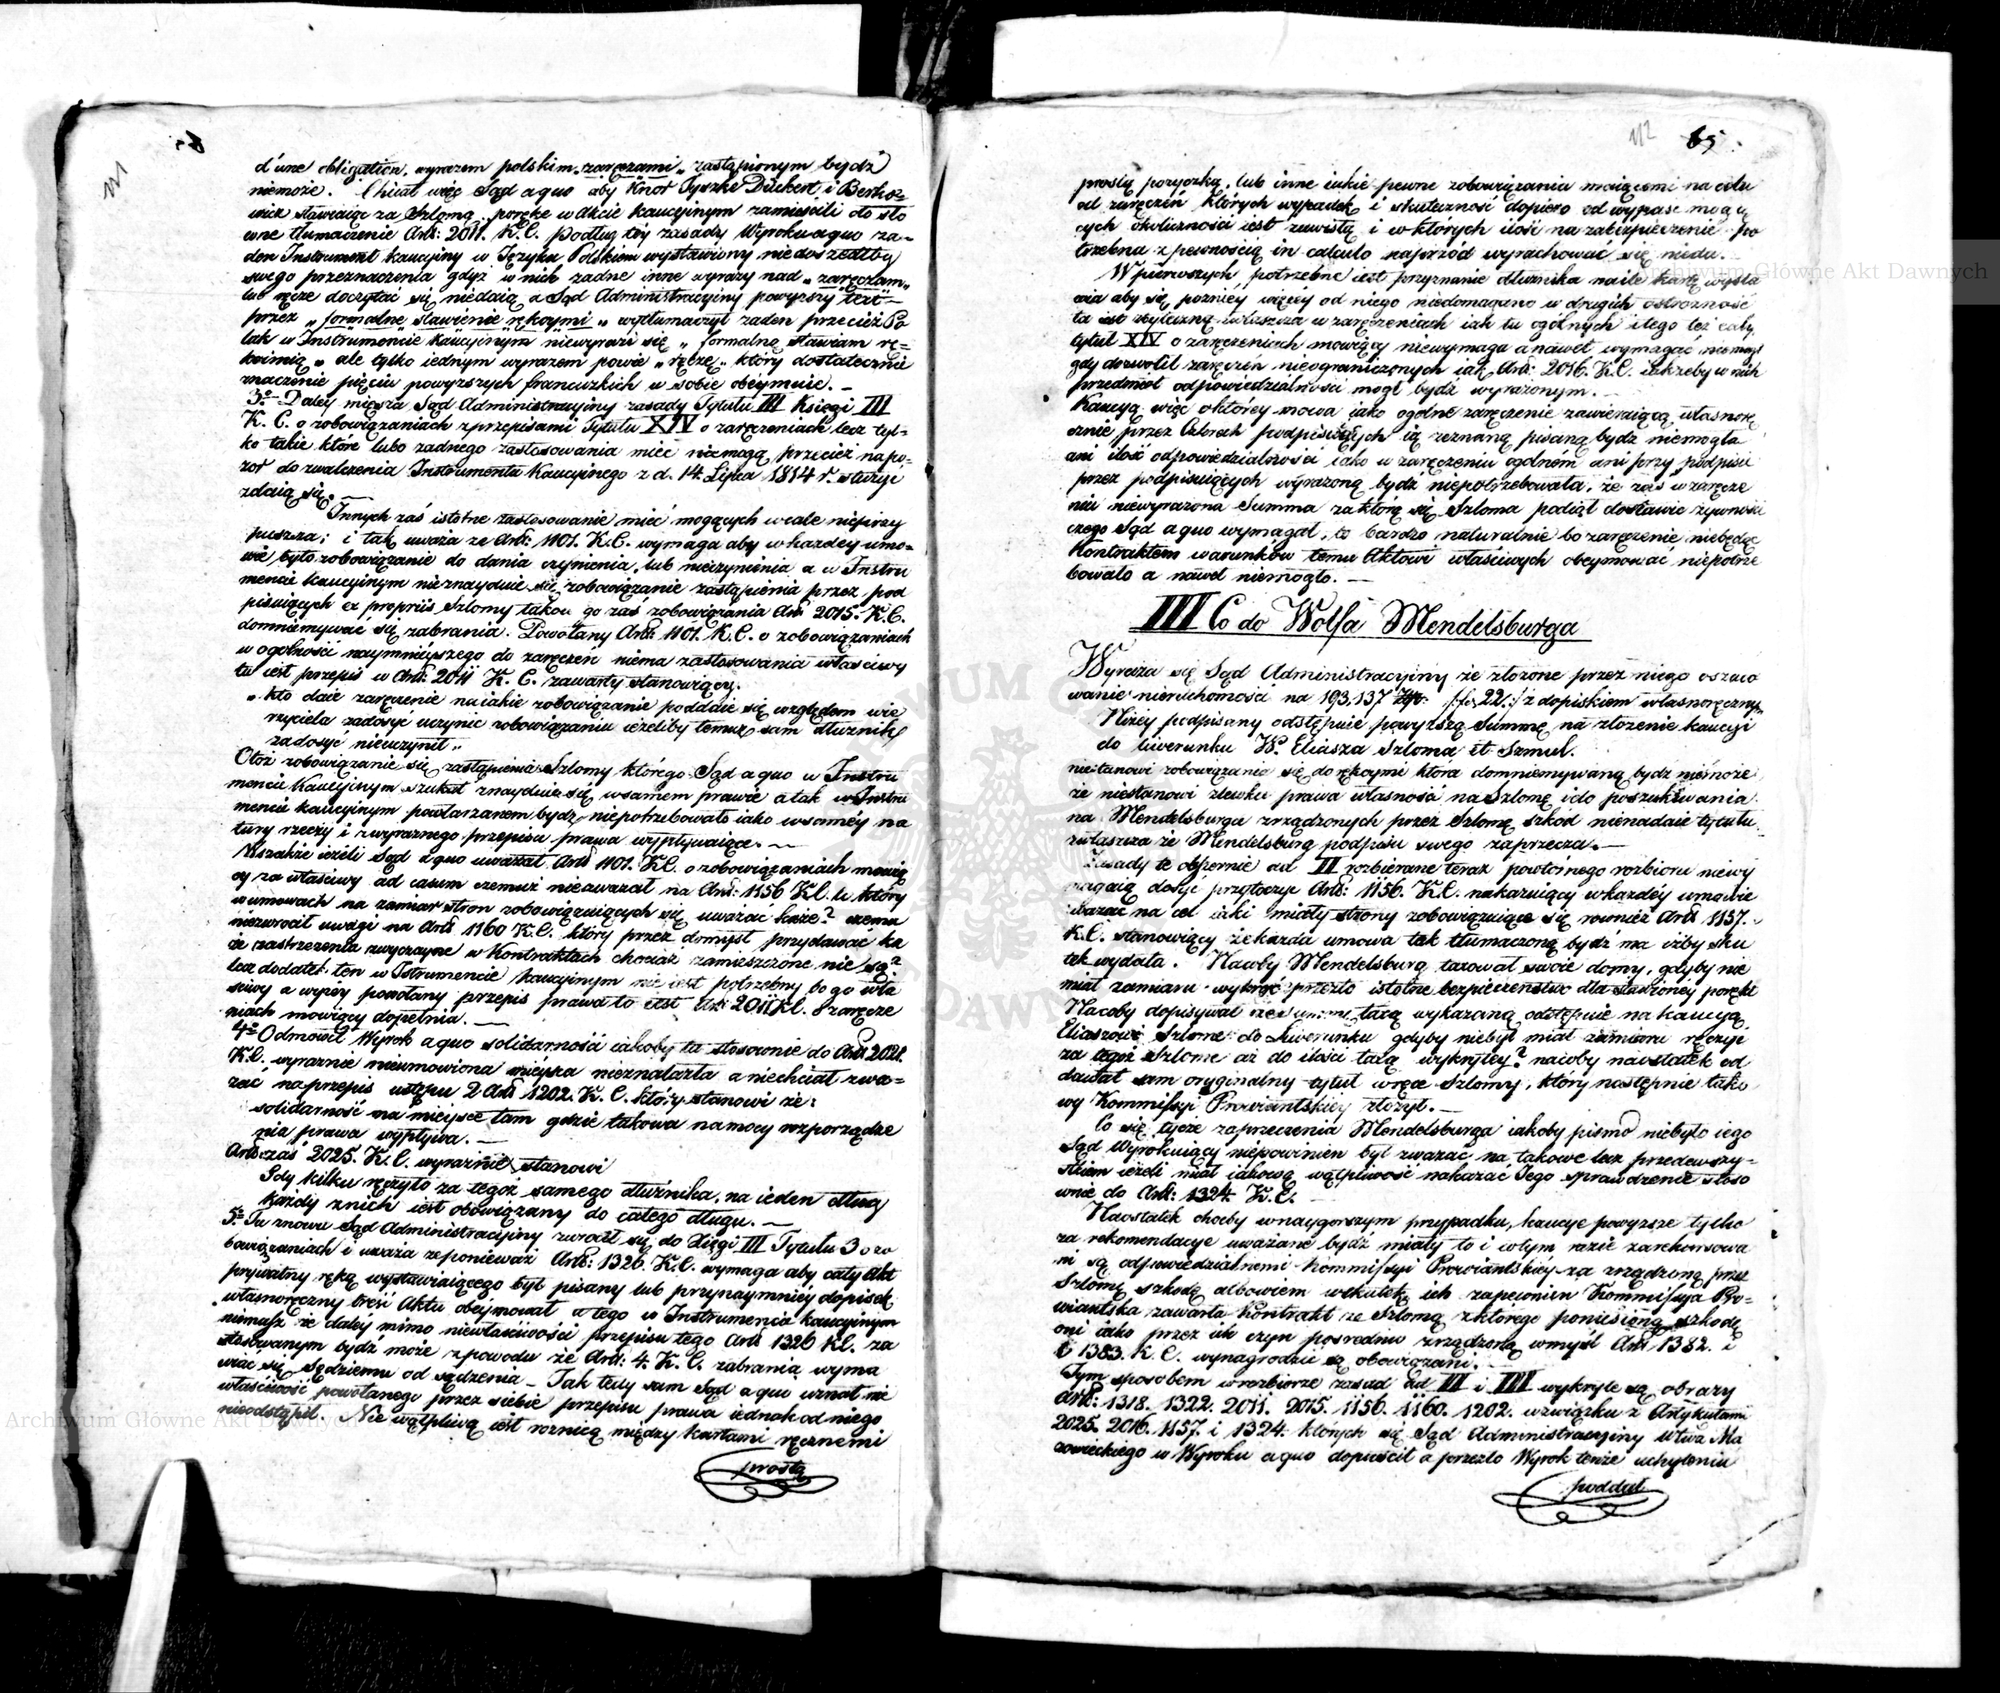 111
d'une obligation, wyrazem polskim „zaręczami" zastąpionym bydź
niemoże. Chciał więc Sąd a quo aby Knor Tyszke Dückert i Berko-
wicz stawiaiąc za Szlomą porękę w akcie kaucyinym zamieścili do sło
wne tłumaczenie Art: 2011. K.C. podług téy zasady Wyroku a quo ża-
den Instrument kaucyiny w Języku Polskiem wystawiony niedoszedłby
swego przeznaczenia gdyż w nich żadne inne wyrazy nad „zaręczam"
lub ręczę doczytać się niedaią a Sąd Administracyiny powyższy text
przez „formalne stawienie rękoymi" wytłumaczył żaden przecież Po
lak w Instrumencie kaucyinym niewyrazi się „formalną stawiam rę-
koimią" ale tylko iednym wyrazem powie „ręczę" który dostatecznie
znaczenie pięciu powyższych francuzkich w sobie obeymuie. –
3o Daley miesza Sąd Administracyiny zasady Tytułu III Księgi III
K. C. o zobowiązaniach z przepisami Tytułu XIV o zaręczeniach lecz tyl-
ko takie które lubo żadnego zastosowania mieć niemogą przecież na po-
zór do zwalczenia Instrumentu Kaucyinego z d. 14. Lipca 1814 r. służyć
zdaią się. –
Innych zaś istotne zastosowanie mieć mogących wcale nieprzy
puszcza; i tak uważa że Art: 1101. K.C. wymaga aby w każdey umo-
wie było zobowiązanie do dania czynienia, lub nieczynienia a w Instru
mencie kaucyinym nieznayduie się zobowiązanie zastąpienia przez pod
pisuiących ex propriis Szlomy takou go zaś zobowiązania Art 2015. K.C.
domniemywać się zabrania. Powołany Art: 1101. K.C. o zobowiązaniach
w ogólności naymnieyszego do zaręczeń niema zastosowania właściwy
tu iest przepis w Art: 2011 K. C. zawarty stanowiący.
„kto daie zaręczenie na iakie zobowiązanie poddaie się względem wie
rzyciela zadosyć uczynić zobowiązaniu ieżeliby temuż sam dłużnik
zadosyć nieuczynił"
Otóż zobowiązanie się zastąpienia Szlomy którego Sąd a quo w Instru
mencie Kaucyinym szukał znayduie się w samem prawie a tak w Instru
mencie kaucyinym powtarzanem bydź niepotrzebowało iako w saméy na
tury rzeczy i z wyraźnego przepisu prawa wypływaiące. –
Wszakże ieżeli Sąd a quo uważał Art 1101. K.C. o zobowiązaniach mówią
cy za właściwy ad casum czemuż nieuważał na Art: 1156 K.C. który
w umowach na zamiar stron zobowiązuiących się uważać każe? czemu
niezwrócił uwagi na Art 1160 K.C. który przez domysł przydawać ka
że zastrzeżenia zwyczayne w Kontraktach chociaż zamieszczone nie są?
lecz dodatek ten w Instrumencie kaucyinym nie iest potrzebny bo go wła
ściwy a wyżéy powołany przepis prawa to iest Art 2011 K.C. o zaręcze
niach mówiący dopełnia. –
4o Odmówił Wyrok a quo solidarności iakoby ta stosownie do Art 2021.
K.C. wyraźnie nieumówiona mieysca nieznalazła a niechciał zwa-
żać na przepis ustępu 2 Art 1202. K. C. który stanowi że:
solidarność ma mieysce tam gdzie takowa na mocy rozporządze
nia prawa wypływa. –
Art zaś 2025. K.C. wyraźnie stanowi
Gdy kilku ręczyło za tegoż samego dłużnika, na ieden dług
każdy z nich iest obowiązany do całego długu. –
5o Tu znowu Sąd Administracyiny zwrócił się do Xięgi III Tytułu 3 o zo
bowiązaniach i uważa że ponieważ Art: 1326. K.C. wymaga aby cały Akt
prywatny ręką wystawiaiącego był pisany lub przynaymniéy dopisek
własnoręczny treść Aktu obeymował a tego w Instrumencie kaucyinym
niemasz że daley mimo niewłaściwości przepisu tego Art 1326 K.C. za
stosowanym bydź może z powodu że Art: 4. K. C. zabrania wyma
wiać się Sędziemu od sądzenia – Tak tedy sam Sąd a quo uznał nie
właściwość powołanego przez siebie przepisu prawa iednak od niego
nieodstąpił. Nie wątpliwą iest różnicą między kartami ręcznemi
prostą
112 65
prostą pożyczką, lub inne iakie pewne zobowiązania maiącemi na celu
od zaręczeń których wypadek i skuteczność dopiero od wypaść mogą
cych okoliczności iest zawisłą i w których ilość na zabezpieczenie po
trzebna z pewnością in calculo naprzód wyrachować się nieda. –
W pierwszych potrzebne iest przyznanie dłużnika na ile kartę wysta
wia aby się późniéy więcéy od niego niedomagano w drugich ostrożność
ta iest zbyteczną zwłaszcza w zaręczeniach iak tu ogólnych i tego też cały
tytuł XIV o zaręczeniach mówiący niewymaga a nawet wymagać niemógł
gdy dozwolił zaręczeń nieograniczonych iak Art: 2016. K.C. iakżeby w nich
przedmiot odpowiedzialności mógł bydź wyrażonym. –
Kaucya więc o którey mowa iako ogólne zaręczenie zawieraiącą własnorę
cznie przez Czterech podpisuiących ią zeznaną pisaną bydź niemogła
ani ilość odpowiedzialności iako w zaręczeniu ogólném ani przy podpisie
przez podpisuiących wyrażoną bydź niepotrzebowała, że zaś w zaręcze
niu niewyrażona Summa za którą się Szloma podiął dostawić żywności
czego Sąd a quo wymagał, to bardzo naturalnie bo zaręczenie niebędąc
Kontraktem warunków temu Aktowi właściwych obeymować niepotrze
bowało a nawet niemogło. –
III Co do Wolfa Mendelsburga
Wyraża się Sąd Administracyiny że złożone przez niego oszaco
wanie nieruchomości na 193,137 Złp: /: fo 22. :/ z dopiskiem własnoręcznym
Niżéy podpisany odstępuie powyższą Summę na złożenie kaucyi
do liwerunku W. Eliasza Szloma et Szmul.
niestanowi zobowiązania się do rękoymi która domniemywaną bydź niemoże
że niestanowi zlewku prawa własność na Szlomę i do poszukiwania
na Mendelsburga zrządzonych przez Szlomę szkód nienadaie tytułu
zwłaszcza że Mendelsburg podpisu swego zaprzecza. –
Zasady te obszernie ad II rozbierane teraz powtórnego rozbioru niewy
magaią dosyć przytoczyć Art: 1156. K.C. nakazuiący w każdéy umowie
uważać na cel iaki miały strony zobowiązuiące się również Art 1157.
K.C. stanowiący że każda umowa tak tłumaczoną bydź ma iżby sku
tek wydała. Nacóby Mendelsburg taxował swoie domy, gdyby nie
miał zamiaru wykryć przezto istotne bezpieczeństwo dla stawioney poręki
Nacoby dopisywał że Summę taxą wykazaną odstępuie na kaucyą
Eliaszowi Szlomie do Liwerunku gdyby niebył miał zamiaru ręczyć
za tegoż Szlomę aż do ilości taxą wykrytey? nacoby naostatek od
dawał sam oryginalny tytuł w ręce Szlomy, który następnie tako
wy Kommissyi Prowiantskiéy złożył. –
Co się tycze zaprzeczenia Mendelsburga iakoby pismo niebyło iego
Sąd Wyrokuiący niepowinien był zważać na takowe lecz przedewszy-
stkiem ieżeli miał iakową wątpliwość nakazać Jego sprawdzenie stoso
wnie do Art: 1324. K.C. –
Naostatek choćby w naygorszym przypadku, kaucye powyższe tylko
za rekomendacye uważane bydź miały to i w tym razie zarekomendowa
ni są odpowiedzialnemi Kommissyi Prowiantskiéy za zrządzoną przez
Szlomę szkodę albowiem w skutek ich zapewnień Kommissyia Pro-
wiantska zawarła Kontrakt ze Szlomą z którego poniesioną szkodę
oni iako przez ich czyn pośrednio zrządzoną w myśl Art: 1382. i
1383. K. C. wynagrodzić są obowiązani. –
Tym sposobem w rozbiorze zasad ad II i III wykryte są obrazy
Art: 1318. 1322. 2011. 2015. 1156. 1160. 1202. w związku z Artykułami
2025. 2016. 1157. i 1324. których się Sąd Administracyiny Wtwa Ma
zowieckiego w Wyroku a quo dopuścił a przezto Wyrok tenże uchyleniu
poddał